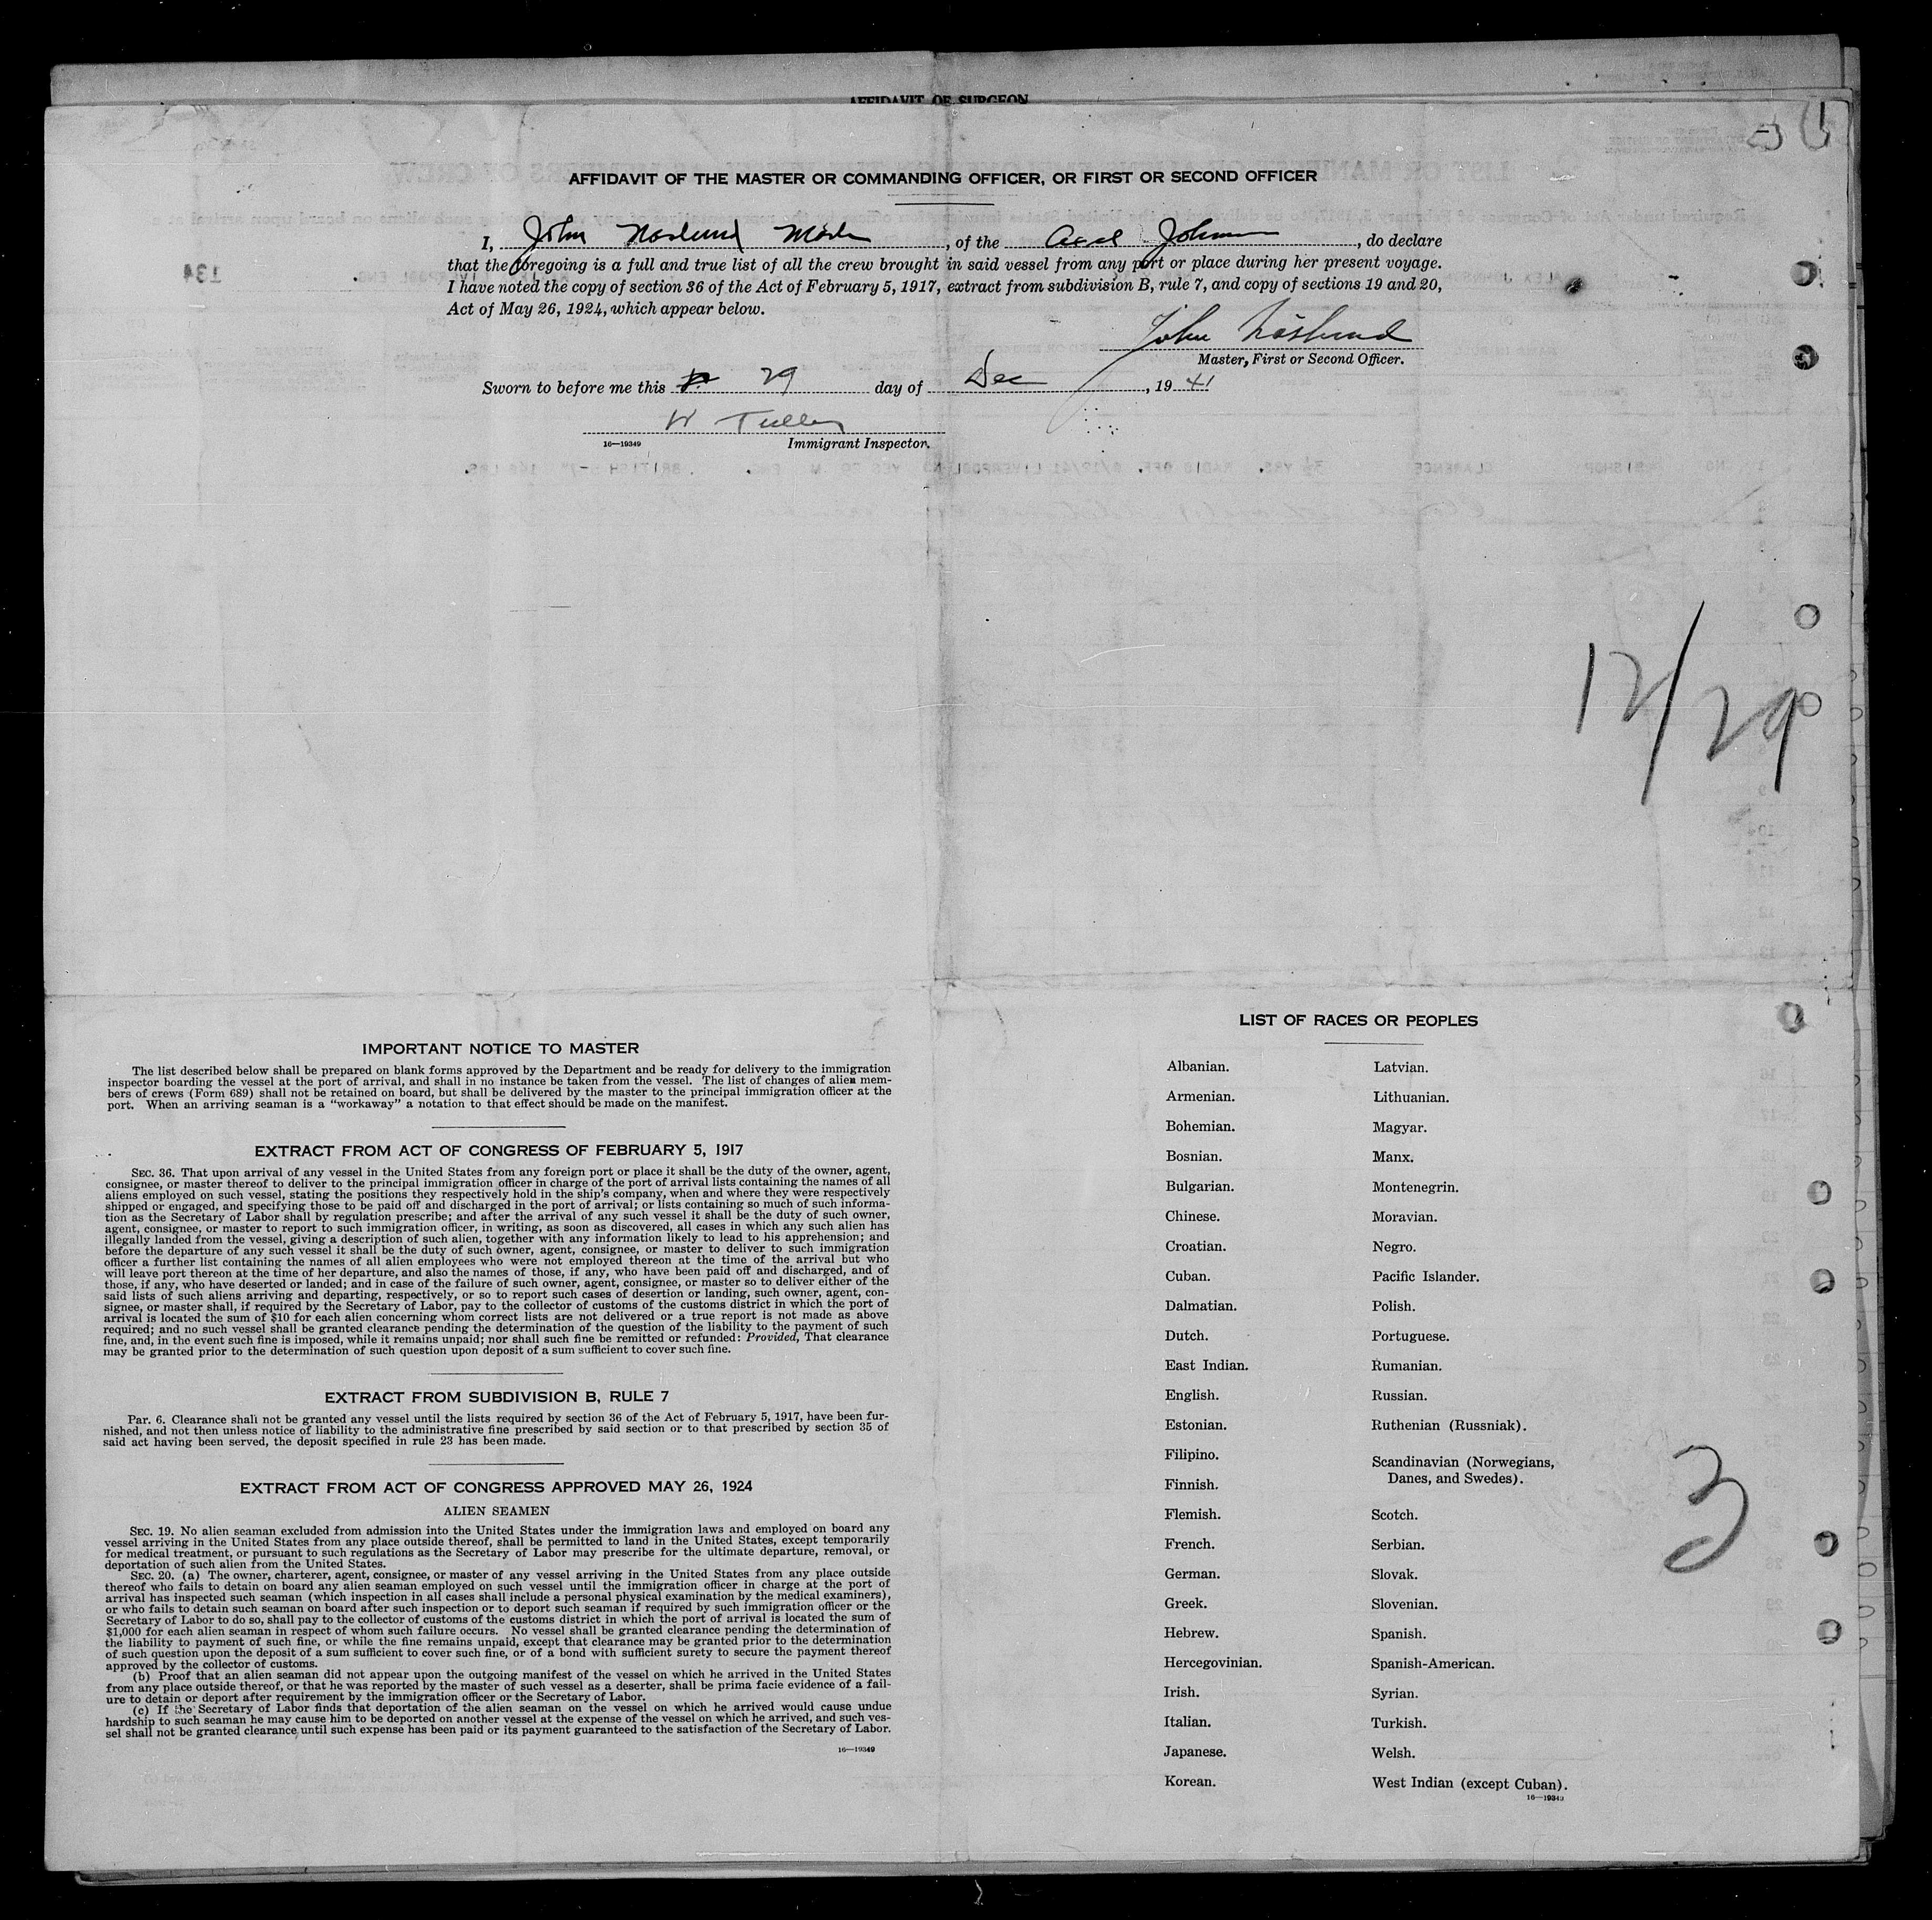 AFFIDAVIT OF SURGEON
AFFIDAVIT OF THE MASTER OR COMMANDING OFFICER, OR FIRST OR SECOND OFFICER
I, John Naslund Master, of the Axel Johnson, do declare
that the foregoing is a full and true list of all the crew brought in said vessel from any port or place during her present voyage.
I have noted the copy of section 36 of the Act of February 5, 1917, extract from subdivision B, rule 7, and copy of sections 19 and 20,
Act of May 26, 1924, which appear below.
John Näslund
Master, First or Second Officer.
Sworn to before me this 29 day of Dec, 1941
W Tulley
16—19349 Immigrant Inspector.
12/29
IMPORTANT NOTICE TO MASTER
The list described below shall be prepared on blank forms approved by the Department and be ready for delivery to the immigration
inspector boarding the vessel at the port of arrival, and shall in no instance be taken from the vessel. The list of changes of alien mem-
bers of crews (Form 689) shall not be retained on board, but shall be delivered by the master to the principal immigration officer at the
port. When an arriving seaman is a "workaway" a notation to that effect should be made on the manifest.
EXTRACT FROM ACT OF CONGRESS OF FEBRUARY 5, 1917
SEC. 36. That upon arrival of any vessel in the United States from any foreign port or place it shall be the duty of the owner, agent,
consignee, or master thereof to deliver to the principal immigration officer in charge of the port of arrival lists containing the names of all
aliens employed on such vessel, stating the positions they respectively hold in the ship's company, when and where they were respectively
shipped or engaged, and specifying those to be paid off and discharged in the port of arrival; or lists containing so much of such informa-
tion as the Secretary of Labor shall by regulation prescribe; and after the arrival of any such vessel it shall be the duty of such owner,
agent, consignee, or master to report to such immigration officer, in writing, as soon as discovered, all cases in which any such alien has
illegally landed from the vessel, giving a description of such alien, together with any information likely to lead to his apprehension; and
before the departure of any such vessel it shall be the duty of such owner, agent, consignee, or master to deliver to such immigration
officer a further list containing the names of all alien employees who were not employed thereon at the time of the arrival but who
will leave port thereon at the time of her departure, and also the names of those, if any, who have been paid off and discharged, and of
those, if any, who have deserted or landed; and in case of the failure of such owner, agent, consignee, or master so to deliver either of the
said lists of such aliens arriving and departing, respectively, or so to report such cases of desertion or landing, such owner, agent, con-
signee, or master shall, if required by the Secretary of Labor, pay to the collector of customs of the customs district in which the port of
arrival is located the sum of $10 for each alien concerning whom correct lists are not delivered or a true report is not made as above
required; and no such vessel shall be granted clearance pending the determination of the question of the liability to the payment of such
fine, and, in the event such fine is imposed, while it remains unpaid; nor shall such fine be remitted or refunded: Provided, That clearance
may be granted prior to the determination of such question upon deposit of a sum sufficient to cover such fine.
EXTRACT FROM SUBDIVISION B, RULE 7
Par. 6. Clearance shall not be granted any vessel until the lists required by section 36 of the Act of February 5, 1917, have been fur-
nished, and not then unless notice of liability to the administrative fine prescribed by said section or to that prescribed by section 35 of
said act having been served, the deposit specified in rule 23 has been made.
EXTRACT FROM ACT OF CONGRESS APPROVED MAY 26, 1924
ALIEN SEAMEN
SEC. 19. No alien seaman excluded from admission into the United States under the immigration laws and employed on board any
vessel arriving in the United States from any place outside thereof, shall be permitted to land in the United States, except temporarily
for medical treatment, or pursuant to such regulations as the Secretary of Labor may prescribe for the ultimate departure, removal, or
deportation of such alien from the United States.
SEC. 20. (a) The owner, charterer, agent, consignee, or master of any vessel arriving in the United States from any place outside
thereof who fails to detain on board any alien seaman employed on such vessel until the immigration officer in charge at the port of
arrival has inspected such seaman (which inspection in all cases shall include a personal physical examination by the medical examiners),
or who fails to detain such seaman on board after such inspection or to deport such seaman if required by such immigration officer or the
Secretary of Labor to do so, shall pay to the collector of customs of the customs district in which the port of arrival is located the sum of
$1,000 for each alien seaman in respect of whom such failure occurs. No vessel shall be granted clearance pending the determination of
the liability to payment of such fine, or while the fine remains unpaid, except that clearance may be granted prior to the determination
of such question upon the deposit of a sum sufficient to cover such fine, or of a bond with sufficient surety to secure the payment thereof
approved by the collector of customs.
(b) Proof that an alien seaman did not appear upon the outgoing manifest of the vessel on which he arrived in the United States
from any place outside thereof, or that he was reported by the master of such vessel as a deserter, shall be prima facie evidence of a fail-
ure to detain or deport after requirement by the immigration officer or the Secretary of Labor.
(c) If the Secretary of Labor finds that deportation of the alien seaman on the vessel on which he arrived would cause undue
hardship to such seaman he may cause him to be deported on another vessel at the expense of the vessel on which he arrived, and such ves-
sel shall not be granted clearance until such expense has been paid or its payment guaranteed to the satisfaction of the Secretary of Labor.
16—19349
LIST OF RACES OR PEOPLES
Albanian.
Armenian.
Bohemian.
Bosnian.
Bulgarian.
Chinese.
Croatian.
Cuban.
Dalmatian.
Dutch.
East Indian.
English.
Estonian.
Filipino.
Finnish.
Flemish.
French.
German.
Greek.
Hebrew.
Hercegovinian.
Irish.
Italian.
Japanese.
Korean.
Latvian.
Lithuanian.
Magyar.
Manx.
Montenegrin.
Moravian.
Negro.
Pacific Islander.
Polish.
Portuguese.
Rumanian.
Russian.
Ruthenian (Russniak).
Scandinavian (Norwegians,
Danes, and Swedes).
Scotch.
Serbian.
Slovak.
Slovenian.
Spanish.
Spanish-American.
Syrian.
Turkish.
Welsh.
West Indian (except Cuban).
16—19349
3